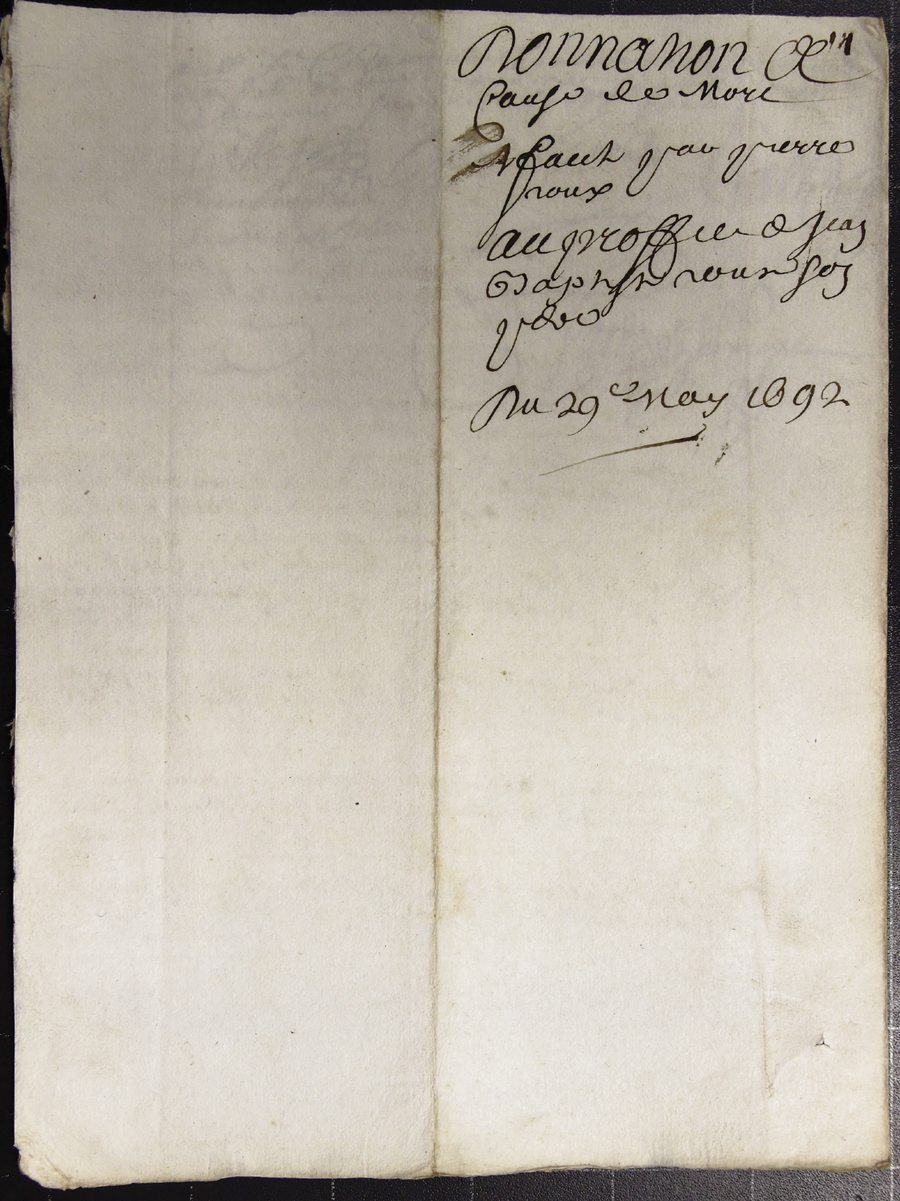 Donnation En
Cause de Mort
Faict par pierre
roux
au proffict de Jean
Baptiste roux son
pere
Du 29e May 1692